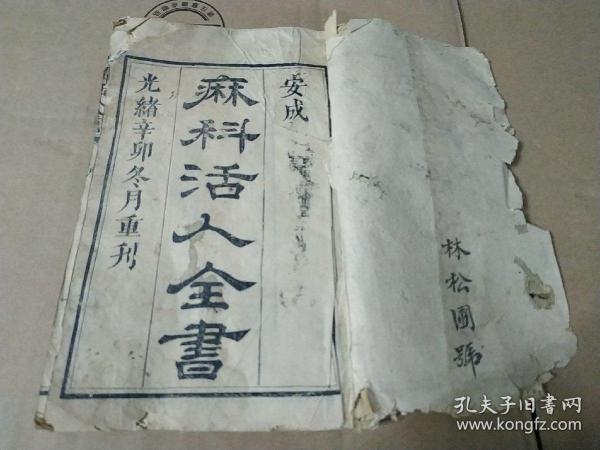 安成
麻科活人全書
光緒辛卯冬月重刊
林松國號
孔夫子旧書网
www.kongfz.com